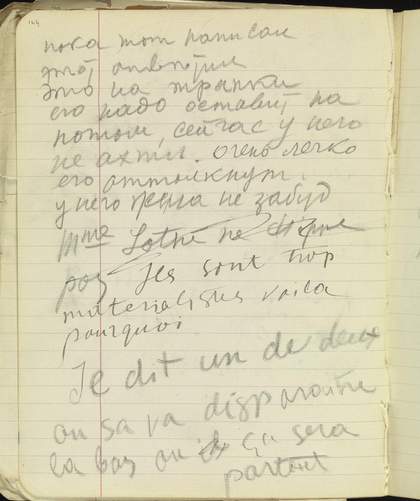 пока тот написал
это на тряпки
его надо оставит на
потом, сейчас у него
не ахти. Очень легко
его оттолкнут.
у него жена не забуд
Mme Lotne ne
pas Ils sont trop
materialistes voila
pourquoi
Je dit un de deux
ou sa va disparaitre
la bas ou ça sera
partout